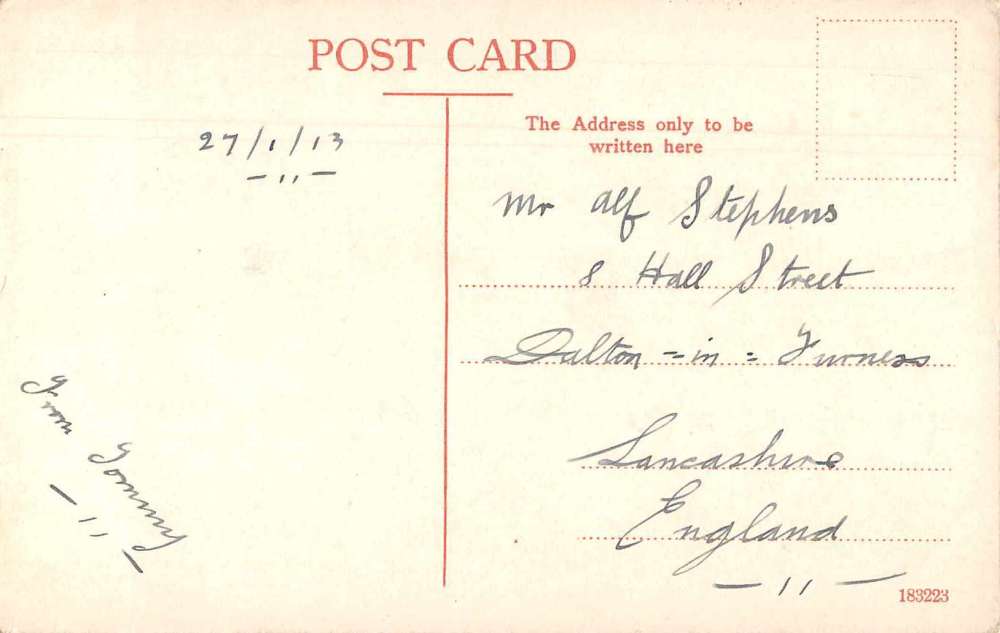 POST CARD
The Address only to be
written here
27/1/13
Mr Alf Stephens
8 Hall Street
Dalton = in = Furness
Lancashire
England
From Tommy
183223